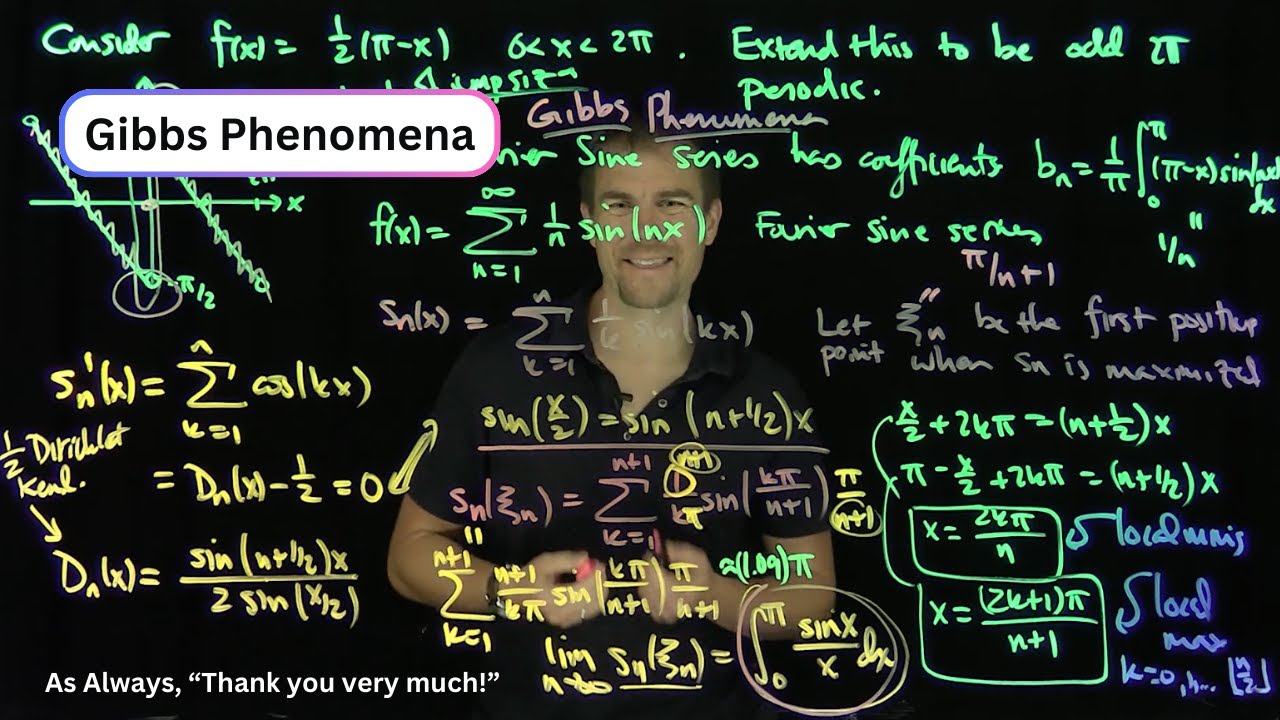 Consider f(x) = 1/2 (π-x) 0<x<2π. Extend this to be odd 2π
periodic.
jump size
Gibbs Phenomena
Gibbs Phenomena
Fourier Sine series has coefficients b_n = 1/π ∫_0^π (π-x) sin(nx) dx
" 1/n
x
-π/2
f(x) = ∑_{n=1}^∞ 1/n sin(nx) Fourier sine series
π/n+1
"
S_n(x) = ∑_{k=1}^n 1/k sin(kx) Let ξ_n be the first positive
point when S_n is maximized
S_n'(x) = ∑_{k=1}^n cos(kx)
1/2 Dirichlet
= D_n(x) - 1/2 = 0
D_n(x) = sin(n+1/2)x / 2 sin(x/2)
sin(x/2) = sin(n+1/2)x
S_n(ξ_n) = ∑_{k=1}^{n+1} (n+1)/kπ sin(kπ/n+1) π/n+1
"
∑_{k=1}^{n+1} n+1/kπ sin(kπ/n+1) π/n+1 ≈(1.09)π
lim_{n→∞} S_n(ξ_n) = ∫_0^π sinx/x dx
x/2 + 2kπ = (n+1/2)x
π - x/2 + 2kπ = (n+1/2)x
x = 2kπ/n local mins
x = (2k+1)π/n+1 local
max
k=0,1,... ⌊n/2⌋
As Always, “Thank you very much!”